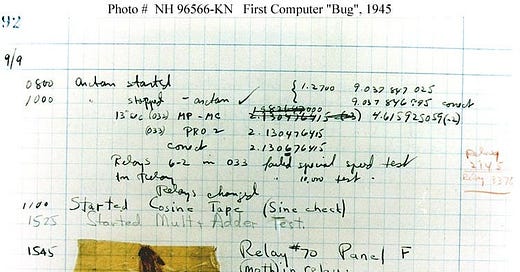 Photo # NH 96566-KN First Computer "Bug", 1945
92
9/9
0800 antan started { 1.2700 9.037 847 025
1000 " stopped - antan ✓ 9.037 846 995 conect
13"uc (032) MP - MC 2.130476415 (-3) 4.615925059(-2)
(033) PRO 2 2.130476415
conect 2.130676415
Relays 6-2 in 033 failed special speed test
in Relay " 10,000 test .
Relays changed
1100 Started Cosine Tape (Sine check)
1525 Started Mult + Adder Test.
1545 Relay #70 Panel F
(moth) in relay.
Relay
2145
Relay 3370